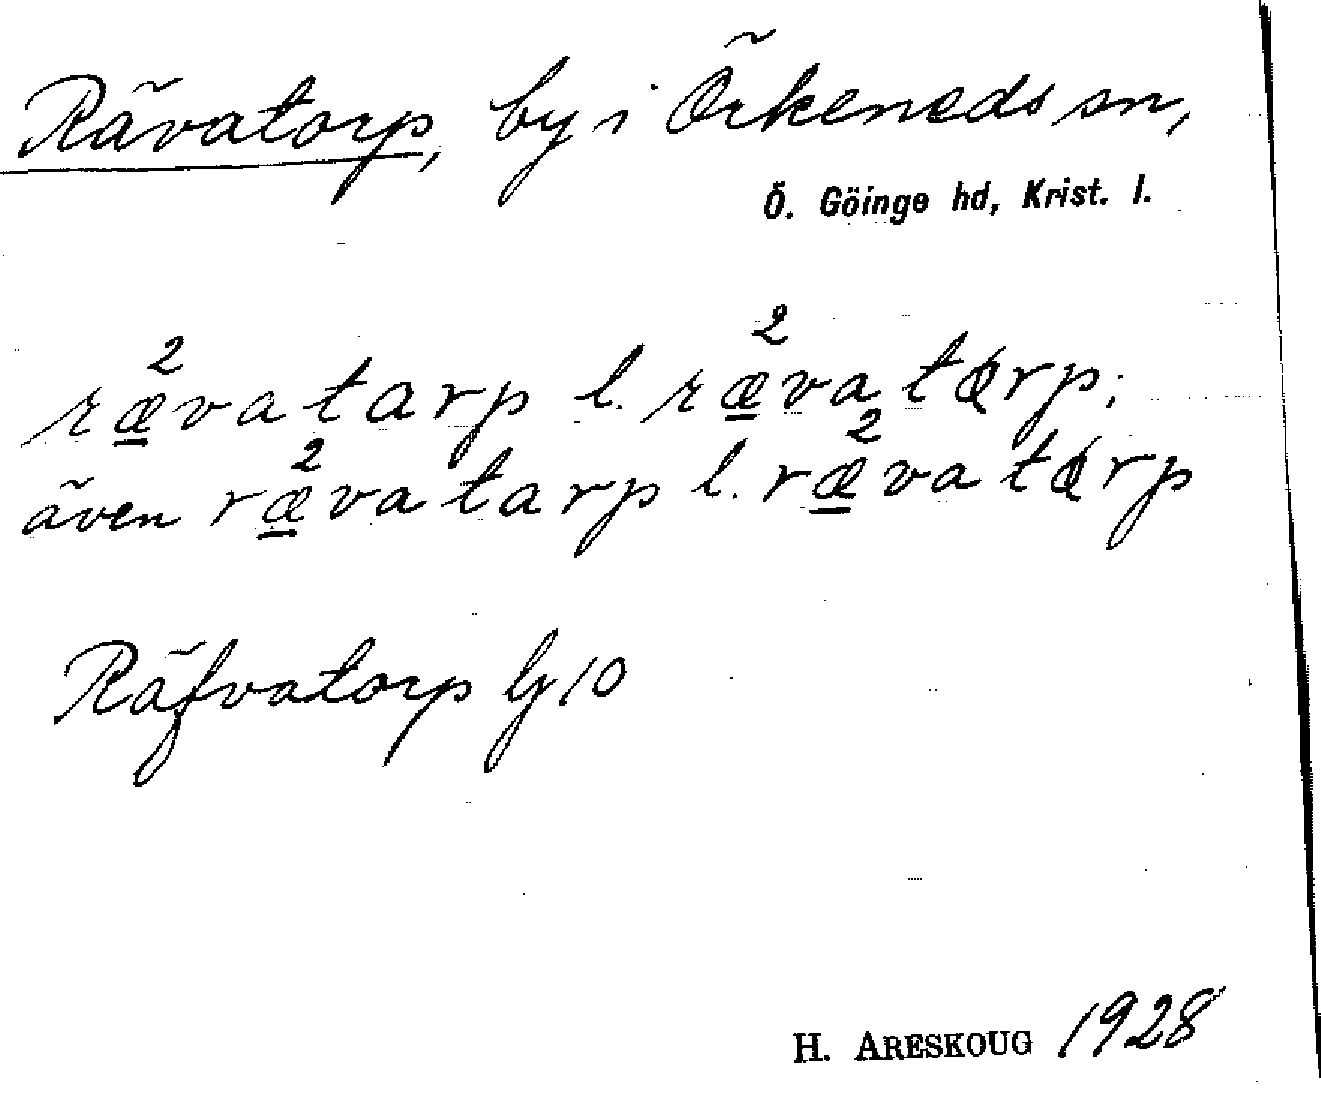 Rävatorp, by i Örkeneds sn,
Ö. Göinge hd, Krist. l.
ræ̲²vatarp l. ræ̲²vatørp;
även ræ̲²vatarp l. ræ̲²vatørp
Räfvatorp G 10
H. ARESKOUG 1928